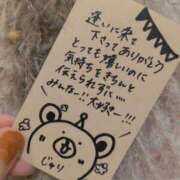 逢いに来て
下さってありがとう
とっても嬉しいのに
気持ちをきちんと
伝えられずに…
みんなー!!大好きー!!!
じゅり